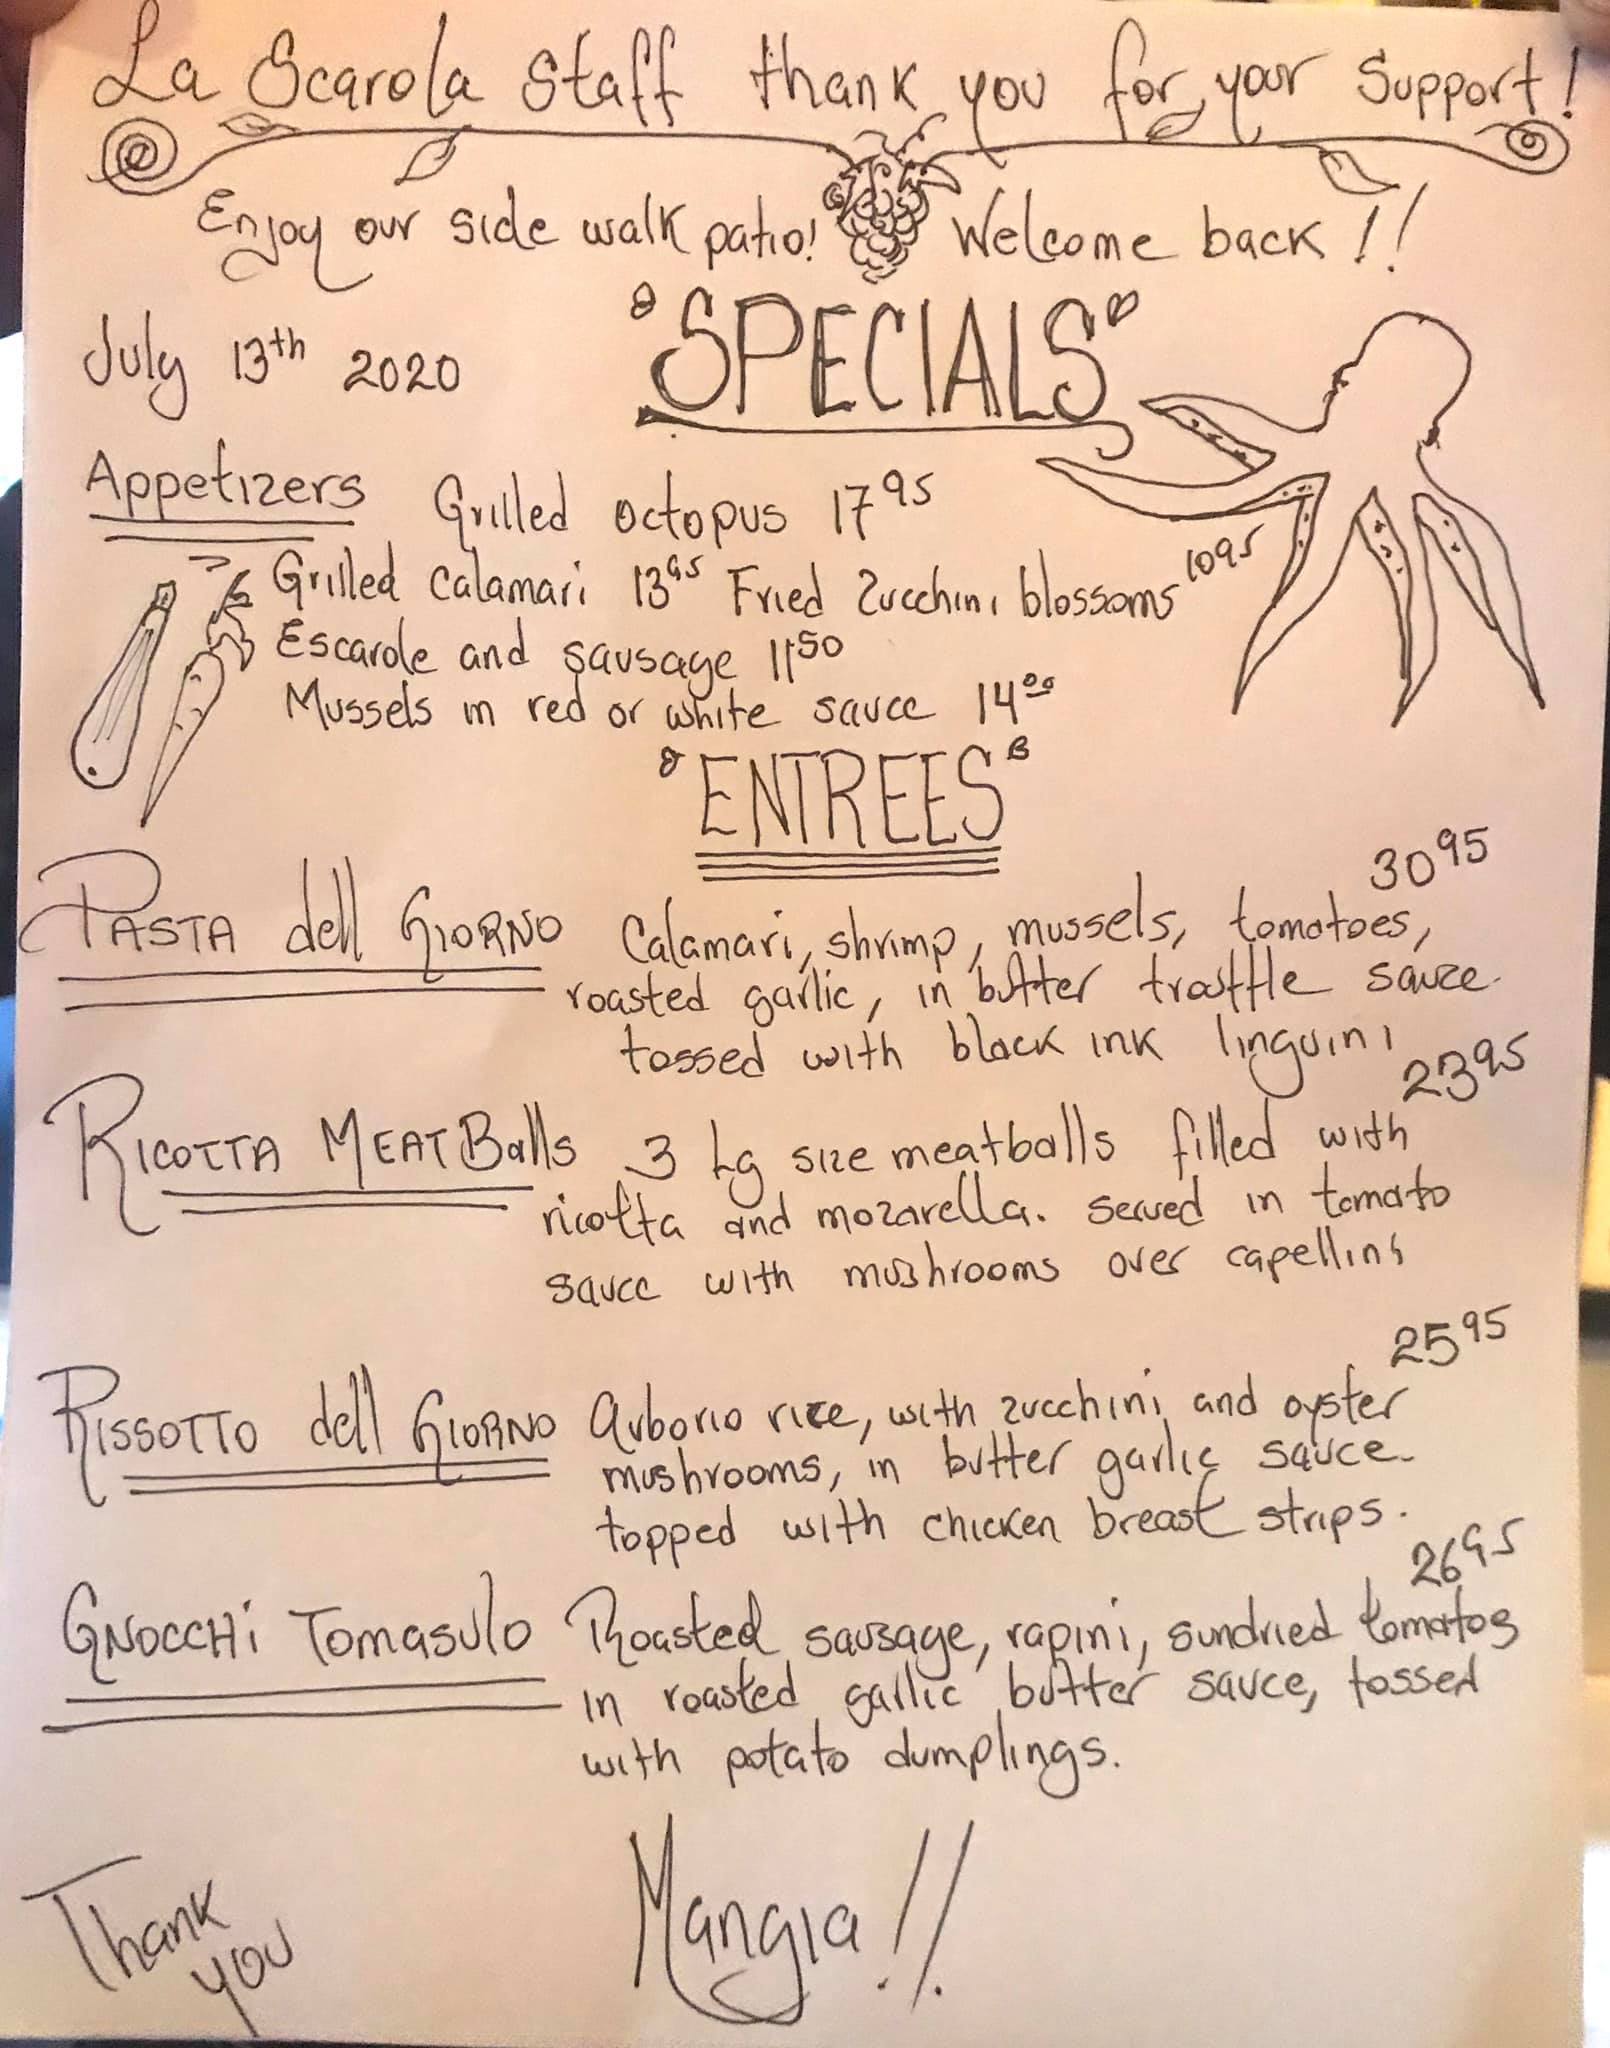 La Scarola Staff thank you for your Support!
Enjoy our side walk patio! Welcome back!!
July 13th 2020
SPECIALS
Appetizers Grilled octopus 17 95
Grilled Calamari 13 95 Fried Zucchini blossoms 10 95
Escarole and sausage 11 50
Mussels in red or white sauce 14 00
ENTREES
30 95
PASTA dell GIORNO Calamari, shrimp, mussels, tomatoes,
roasted garlic, in butter trouffle sauce.
tossed with black ink linguini
23 95
RICOTTA MEATBalls 3 Lg size meatballs filled with
ricotta and mozarella. served in tomato
sauce with mushrooms over capellini
25 95
RISSOTTO dell GIORNO Arborio rice, with zucchini and oyster
mushrooms, in butter garlic sauce.
topped with chicken breast strips.
26 95
GNOCCHi Tomasulo Roasted sausage, rapini, sundried tomatos
in roasted garlic butter sauce, tossed
with potato dumplings.
Thank
you
Mangia!!